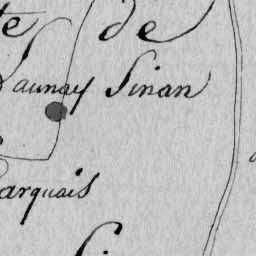 de
aunay Sinan
arquais